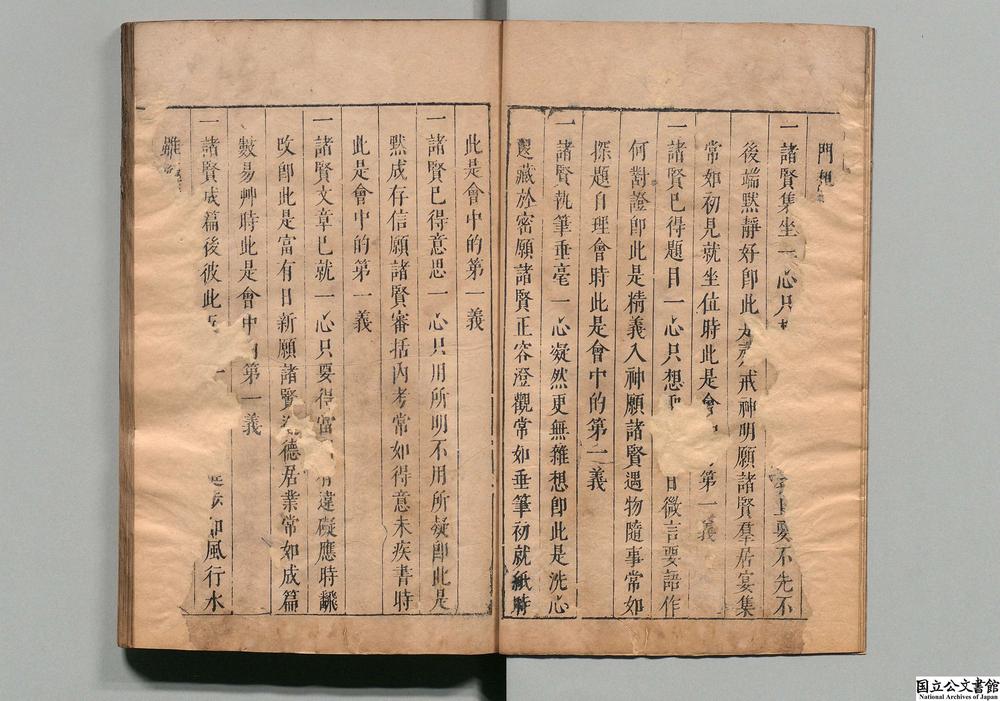 門
一諸賢集坐一心只 要不先不
後端默靜好卽此 戒神明願諸賢羣居宴集
常如初見就坐位時此是會 第一義
一諸賢已得題目一心只想 微言要語作
何對證卽此是精義入神願諸賢遇物隨事常如
探題自理會時此是會中的第一義
一諸賢執筆垂毫一心凝然更無雜想卽此是洗心
退藏於密願諸賢正容澄觀常如垂筆初就紙時
此是會中的第一義
一諸賢已得意思一心只用所明不用所凝卽此是
默成存信願諸賢審括內考常如得意未疾書時
此是會中的第一義
一諸賢文章已就一心只要得當 有違礙應時
改卽此是富有日新願諸賢 德居業常如成篇
數易艸時此是會中 第一義
一諸賢成篇後彼此 如風行水
雖
国立公文書館
National Archives of Japan